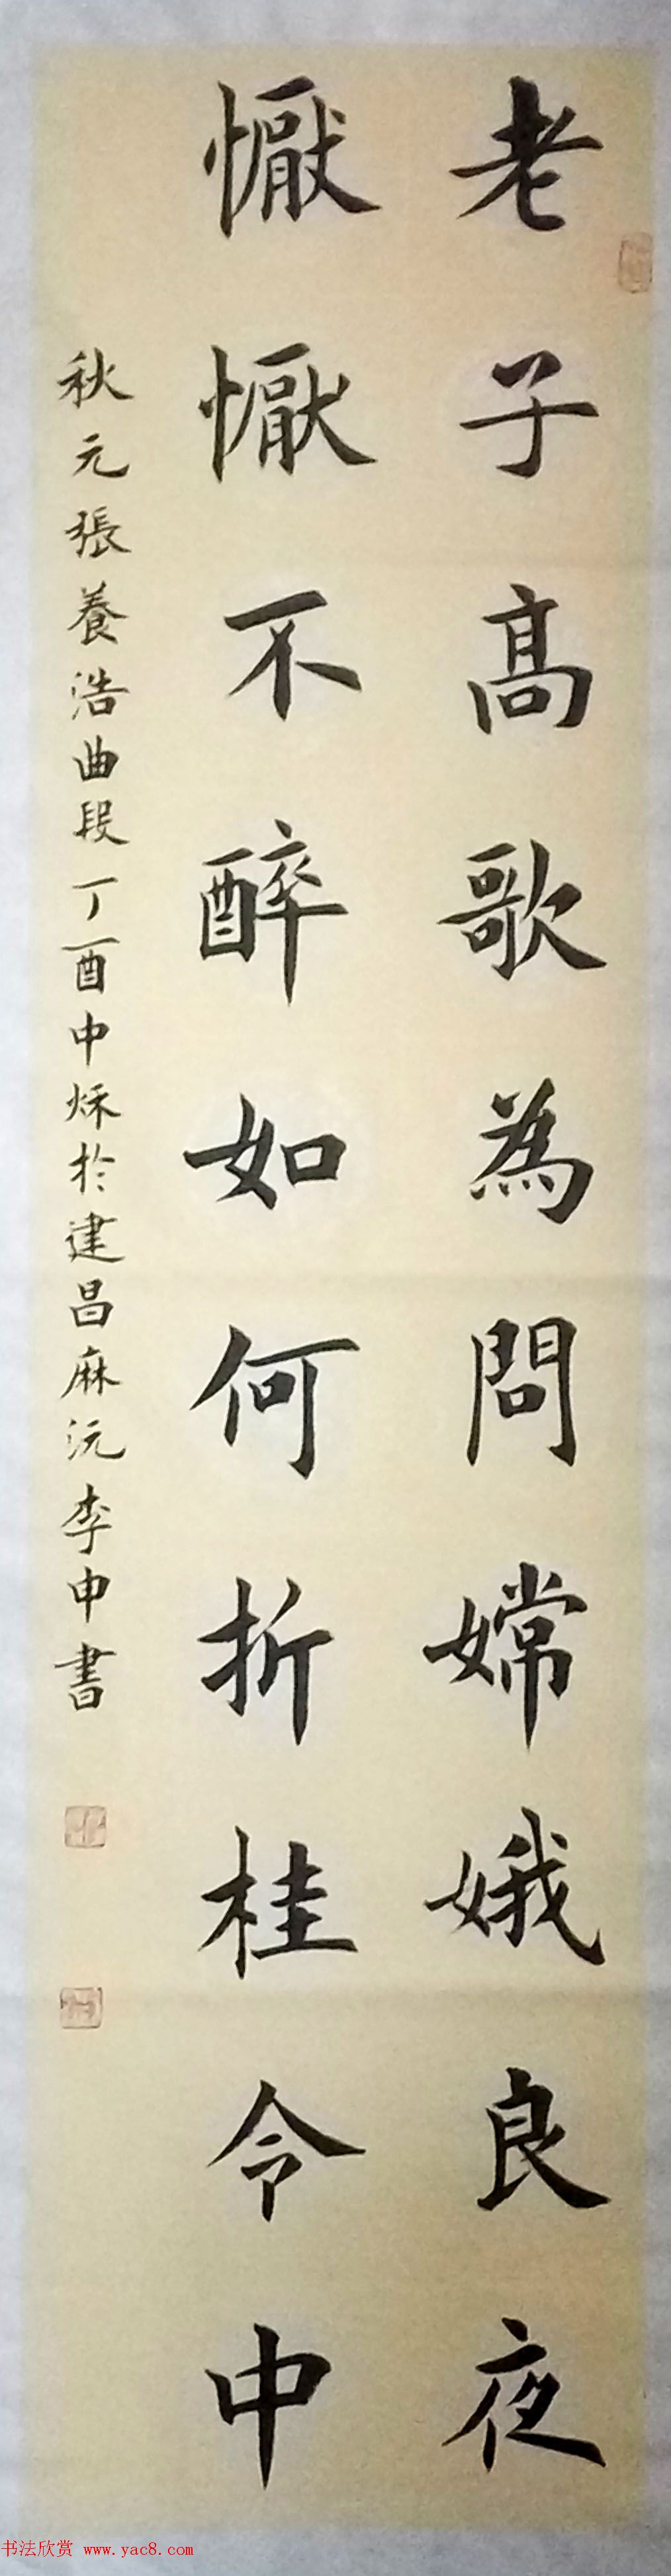 老子高歌為問嫦娥良夜
懨懨不醉如何折桂令中
秋元張養浩曲段丁酉中秌於建昌麻沅李申書
书法欣赏 www.yac8.com